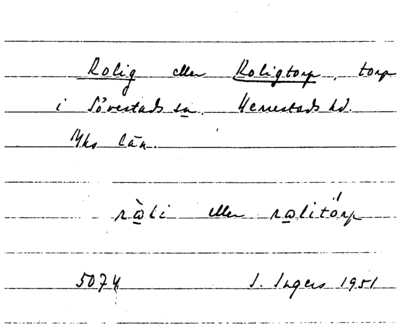 Rolig eller Roligtorp, torp
i Sövestads sn. Herrestads hd.
Mhs län.
ròli eller rolitórp
5074 I. Ingers 1951